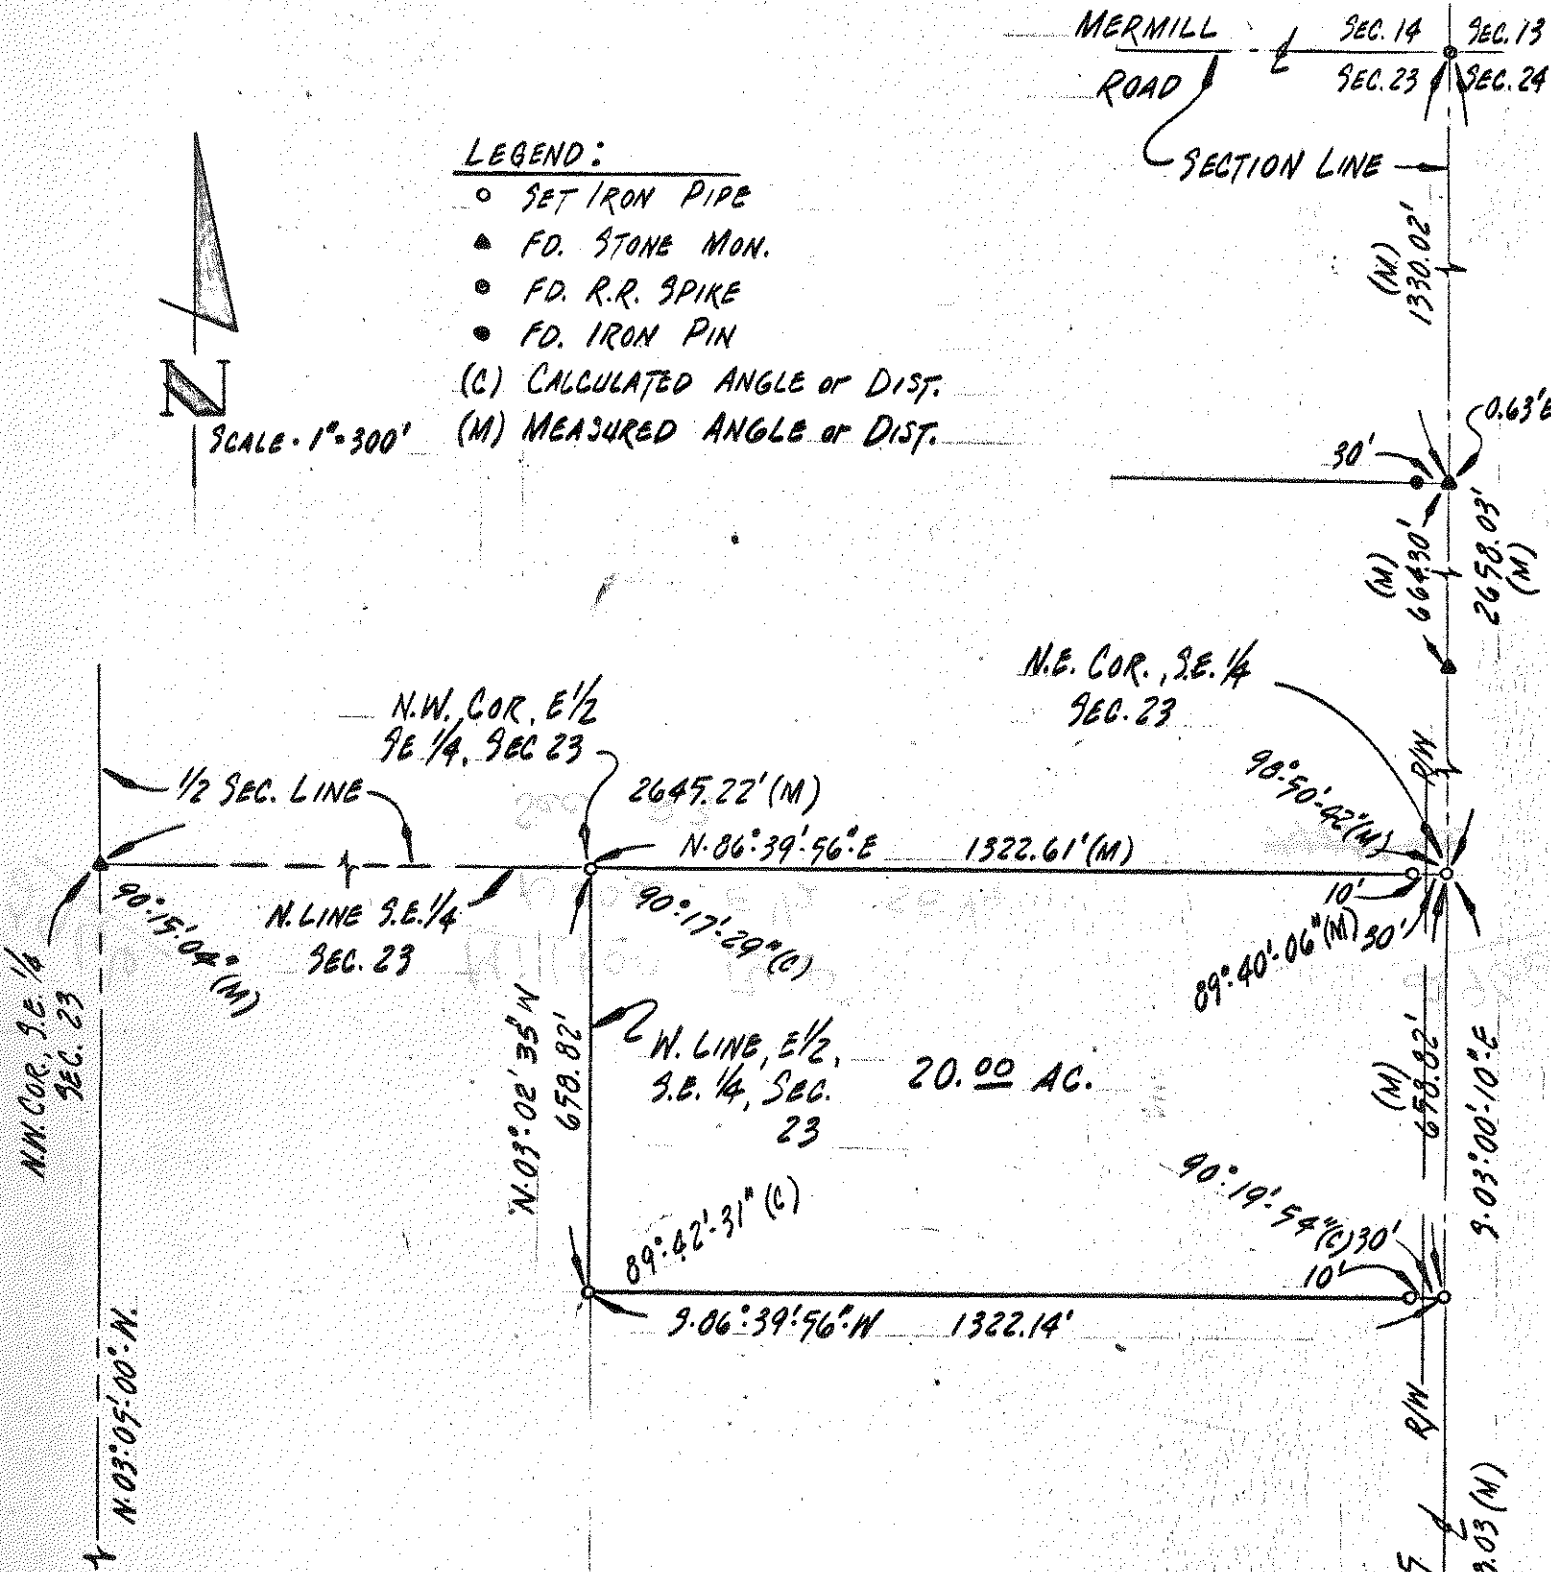 MERMILL
ROAD
SEC. 14
SEC. 13
SEC. 23
SEC. 24
SECTION LINE
LEGEND:
SET IRON PIPE
FD. STONE MON.
FD. R.R. SPIKE
FD. IRON PIN
(C) CALCULATED ANGLE or DIST.
(M) MEASURED ANGLE or DIST.
N
SCALE - 1"=300'
(M)
1330.02'
0.63'E
30'
(M)
664.30'
2658.03'
(M)
N.E. COR., S.E. 1/4
SEC. 23
N.W. COR, E 1/2
SE 1/4, SEC 23
1/2 SEC. LINE
2645.22' (M)
R/W
N-86°-39'-56"-E
1322.61' (M)
90°-15'-04" (M)
N. LINE S.E. 1/4
SEC. 23
90°-17'-29" (C)
10'
30'
89°-40'-06" (M)
N.W. COR, S.E. 1/4
SEC. 23
N-03°-02' 35" W
658.82'
W. LINE, E 1/2,
S.E. 1/4, SEC.
23
20.00 AC.
(M)
658.82'
S-03°-00'-10"-E
89°-42'-31" (C)
90°-19'-54" (C)
30'
10'
S-86°-39'-56"-W
1322.14'
N-03°-05'-00"-W.
R/W
9.03 (M)